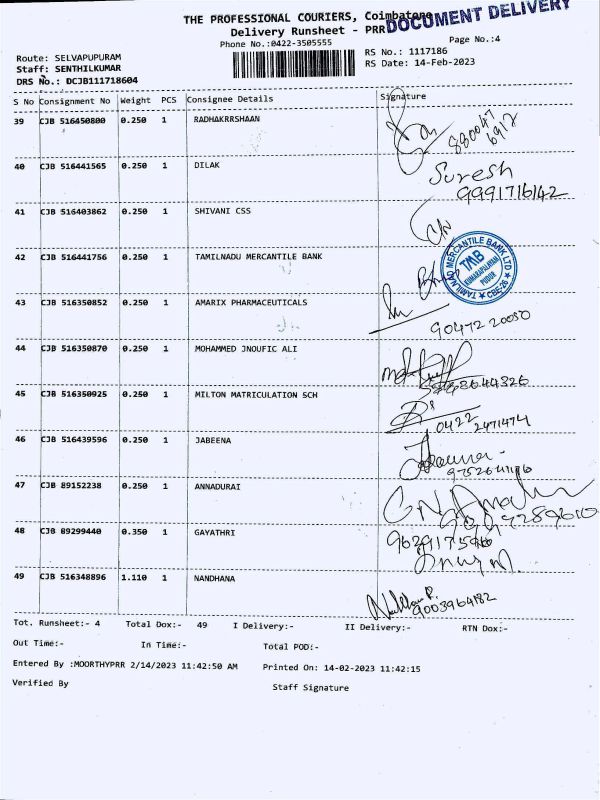 THE PROFESSIONAL COURIERS, Coimbatore
DOCUMENT DELIVERY
Delivery Runsheet - PRR
Phone No.:0422-3505555
Page No.:4
Route: SELVAPUPURAM
RS No.: 1117186
Staff: SENTHILKUMAR
RS Date: 14-Feb-2023
DRS No.: DCJB111718604
S No Consignment No Weight PCS Consignee Details Signature
39 CJB 516450800 0.250 1 RADHAKRRSHAAN
40 CJB 516441565 0.250 1 DILAK
Suresh
9991716142
41 CJB 516403862 0.250 1 SHIVANI CSS
42 CJB 516441756 0.250 1 TAMILNADU MERCANTILE BANK
TAMILNAD MERCANTILE BANK LTD
TMB
KUMARAPALAYAM
PUDUR
CBE-26
43 CJB 516350852 0.250 1 AMARIX PHARMACEUTICALS
90472 20050
44 CJB 516350870 0.250 1 MOHAMMED JNOUFIC ALI
45 CJB 516350925 0.250 1 MILTON MATRICULATION SCH
0422 2471474
46 CJB 516439596 0.250 1 JABEENA
47 CJB 89152238 0.250 1 ANNADURAI
48 CJB 89299440 0.350 1 GAYATHRI
49 CJB 516348896 1.110 1 NANDHANA
9003964182
Tot. Runsheet:- 4 Total Dox:- 49 I Delivery:- II Delivery:- RTN Dox:-
Out Time:- In Time:- Total POD:-
Entered By :MOORTHYPRR 2/14/2023 11:42:50 AM Printed On: 14-02-2023 11:42:15
Verified By Staff Signature